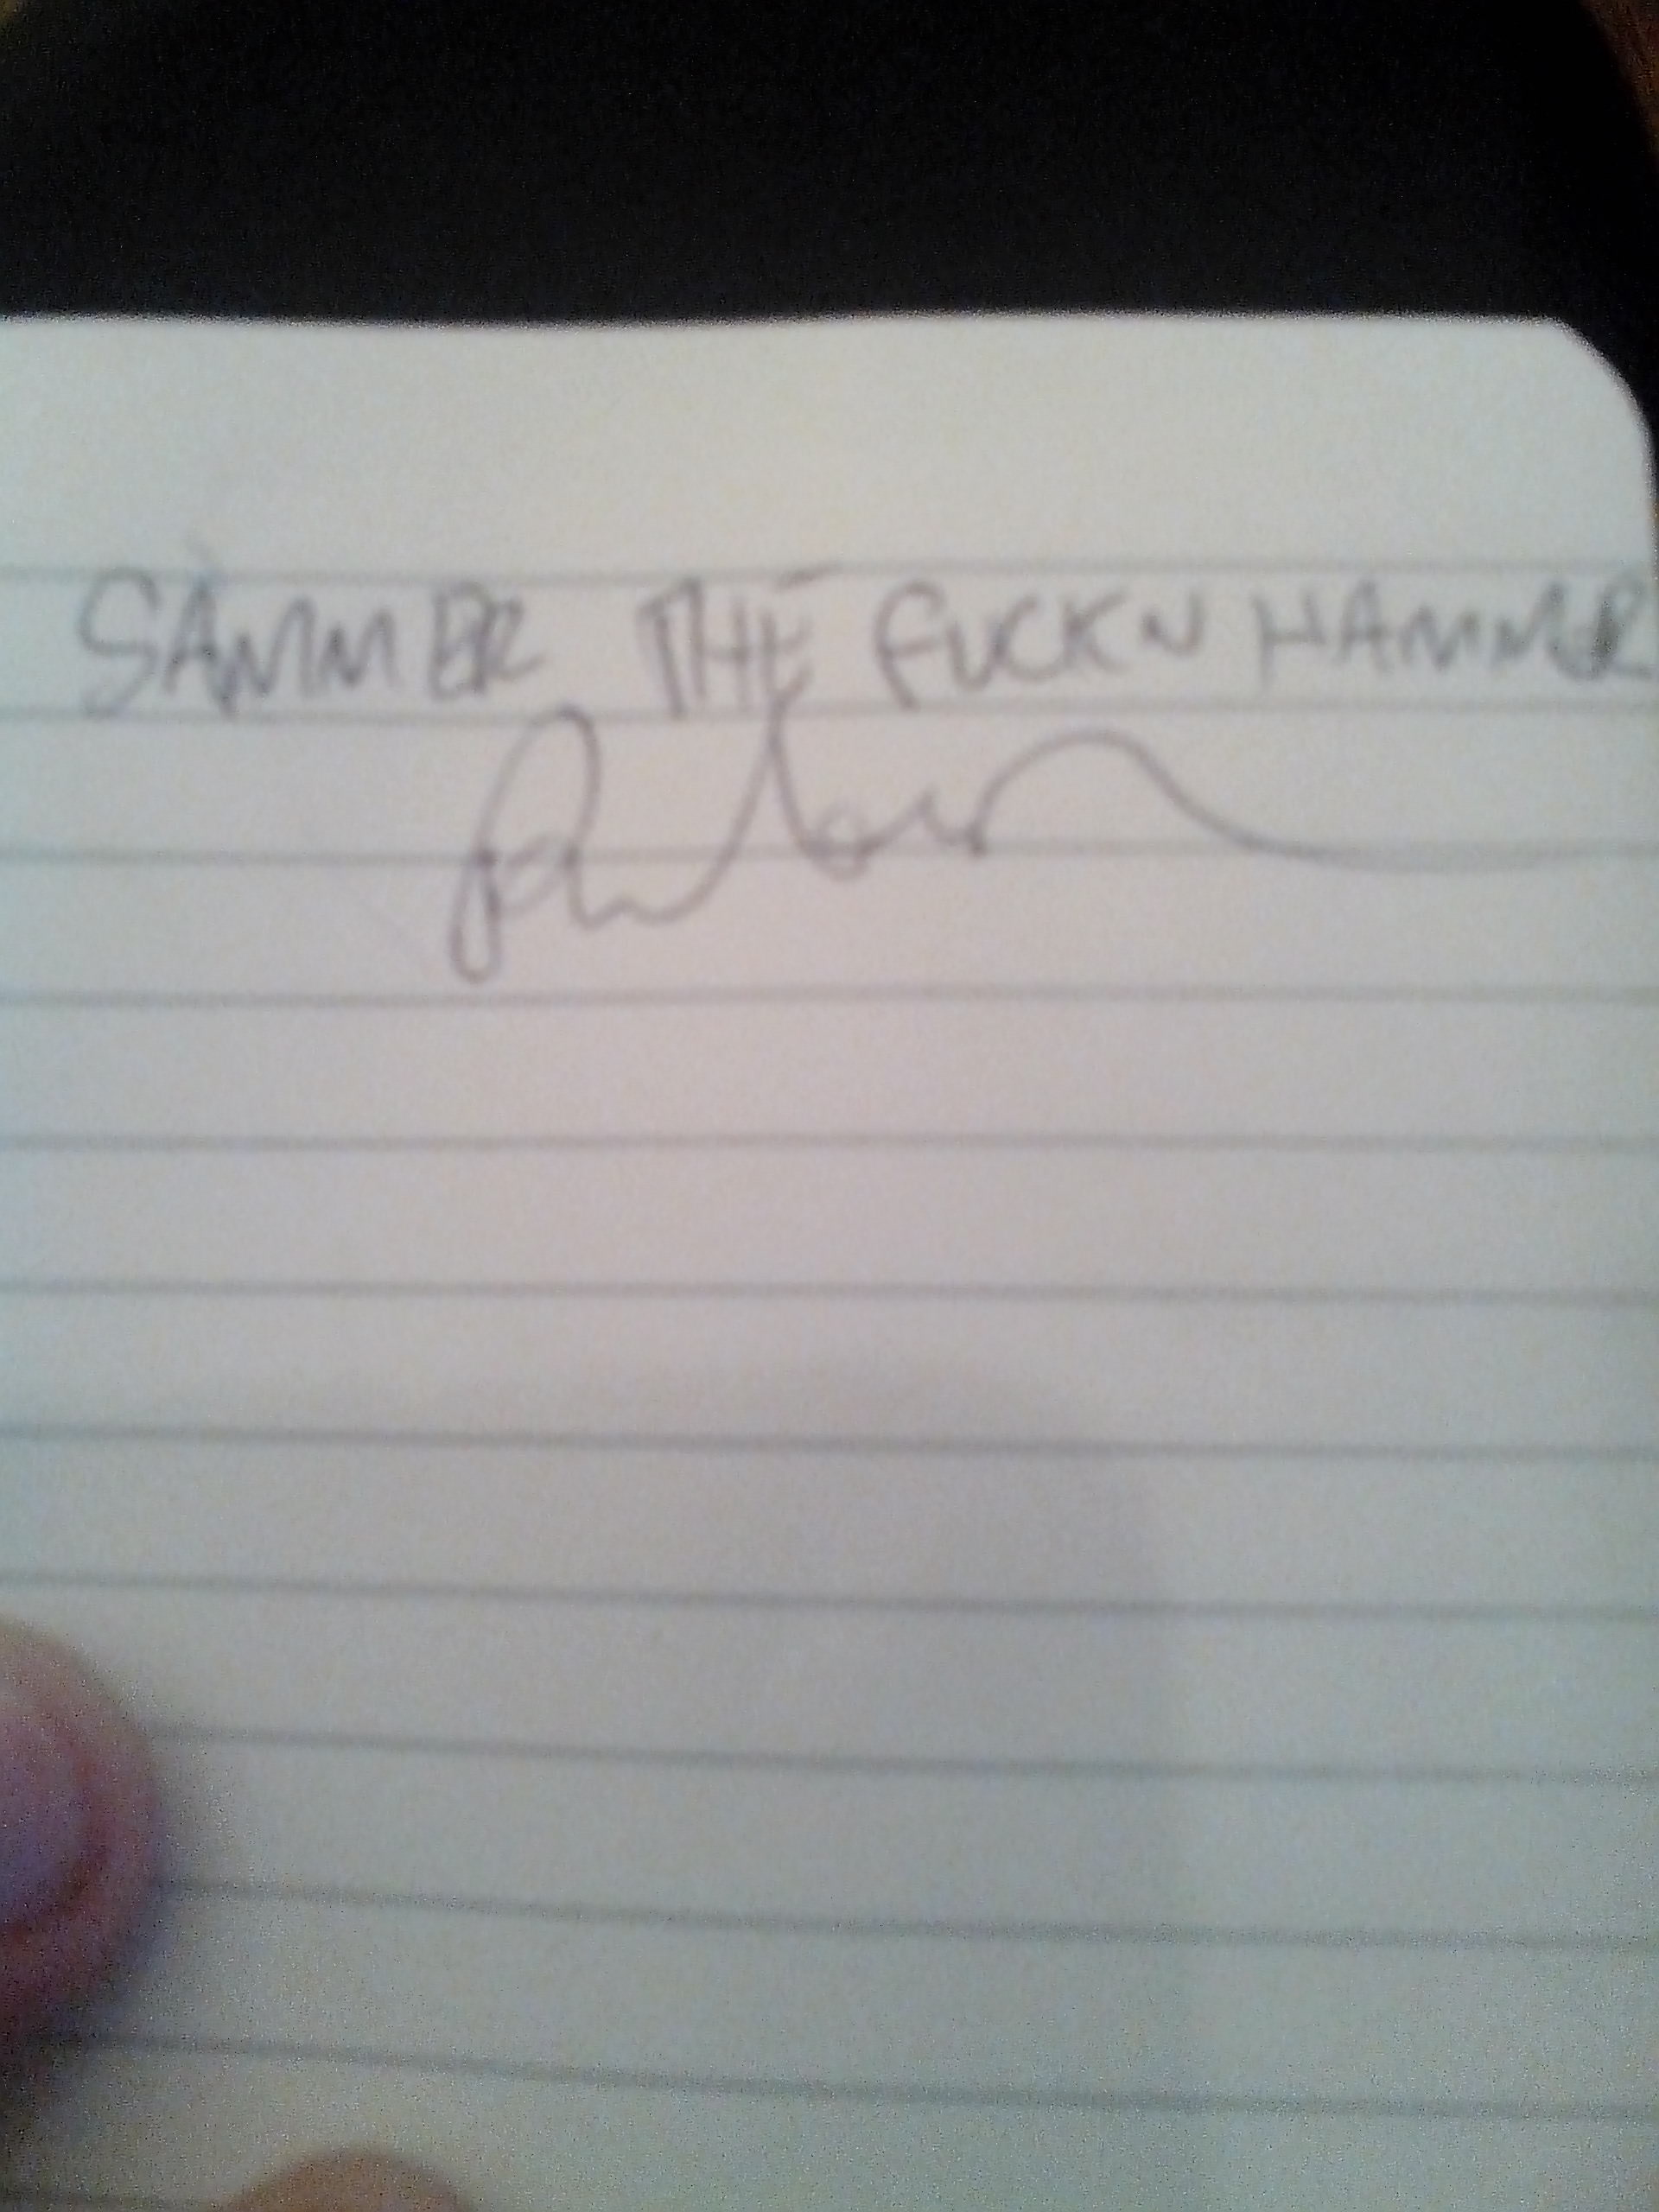 SAMMER THE FUCKN HAMMER